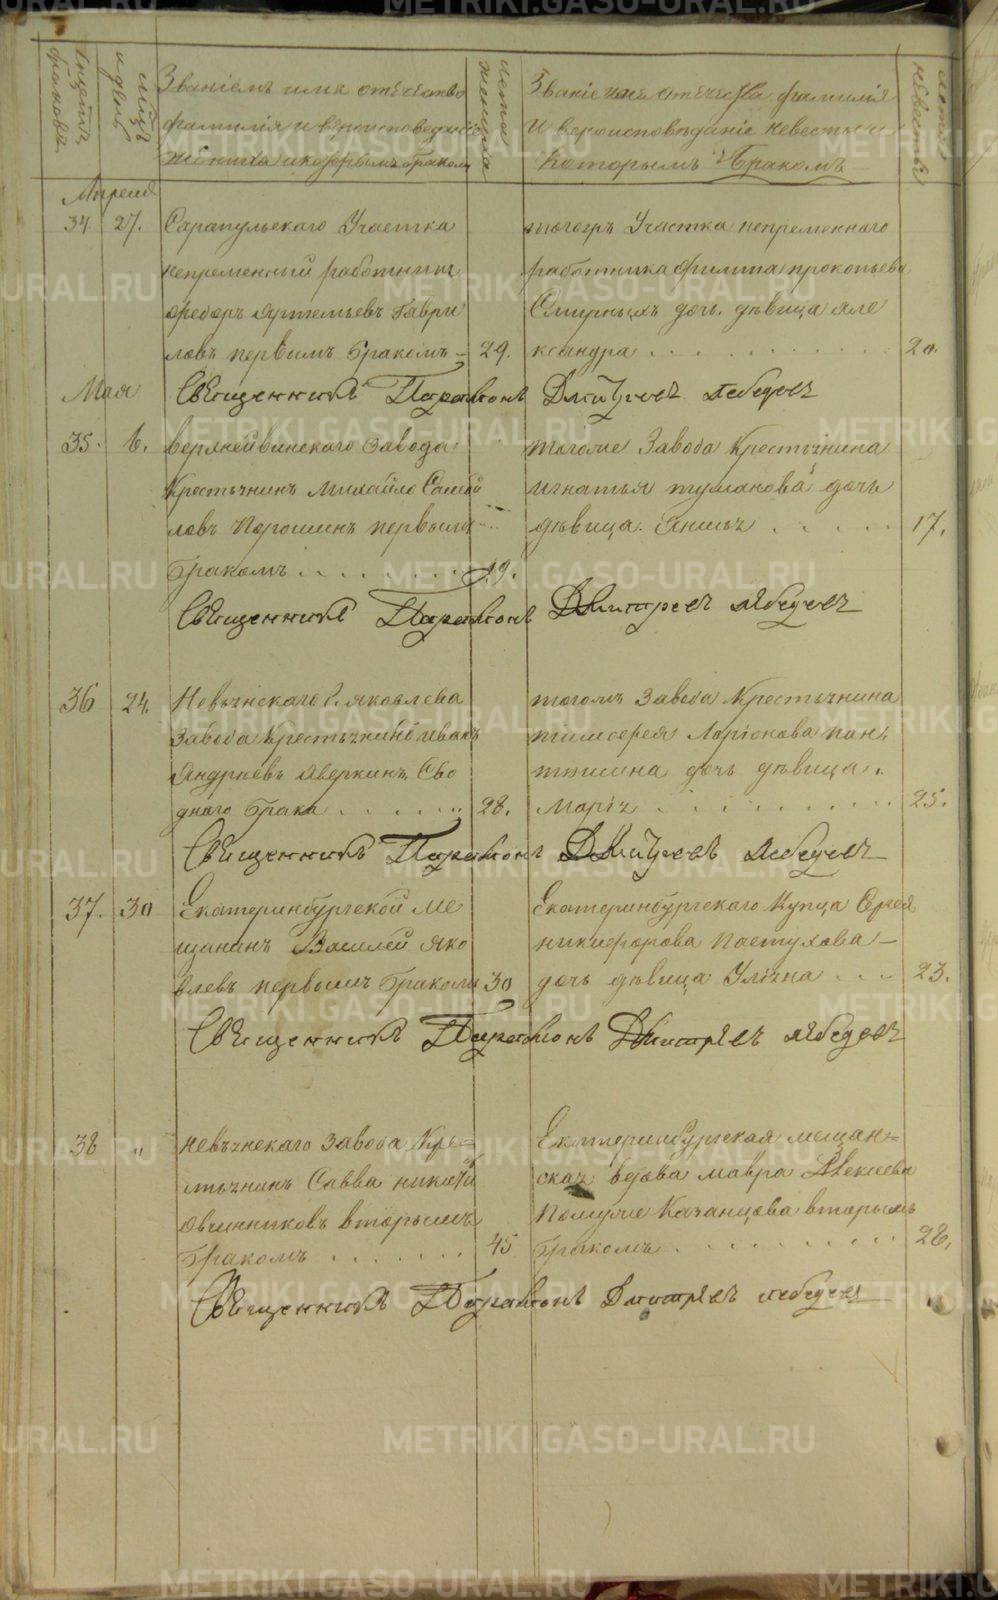 Щетъ браковъ
мѣсяцъ и день
Званіемъ имя отечество
фамилія и вероисповеданіе
жениха и которымъ бракомъ
лета жениха
Званіе имя отечества фамилія
и вероисповѣданіе невесты и
которымъ бракомъ
лета невѣсты
Апреля
34 27. Сарапульскаго Участка
непременный работникъ
Ѳедоръ Артемьевъ Гаври
ловъ первымъ бракомъ 29.
тогожъ Участка непременнаго
работника Филипа Прокопьева
Смирныхъ дочь девица Але
ксандра 20.
Священникъ Парамонъ Дмитріевъ Лебедевъ
Мая
35. 6. верхнейвинскаго Завода
Крестьянинъ Михайло Самой
ловъ Порошинъ первымъ
бракомъ 19.
тогоже Завода Крестьянина
Игнатья Туманова дочь
дѣвица 17.
Священникъ Парамонъ Дмитріевъ Лебедевъ
36 24. Невьянскаго Яковлева
Завода Крестьянинъ Иванъ
Андріевъ Аверкинъ, Сво
днаго брака 28.
тогожъ Завода Крестьянина
Тимоѳея Ларіонова Пан
дочь дѣвица
Марія 25.
Священникъ Парамонъ Дмитріевъ Лебедевъ
37. 30 Екатеринбургской Ме
щанинъ Василей Яко
влевъ первымъ бракомъ 30
Екатеринбургскаго Купца Сергея
Никифорова Пастухова
дочь дѣвица Уліяна 23.
Священникъ Парамонъ Дмитріевъ Лебедевъ
38 " Невьянскаго Завода Кре=
стьянинъ Савва Никитинъ
Овчинниковъ вторымъ
бракомъ 45
Екатеринбургская мещан=
ская вдова Мавра Алексеева
Помуже Казанцова вторымъ
бракомъ 28.
Священникъ Парамонъ Дмитріевъ Лебедевъ
METRIKI.GASO-URAL.RU